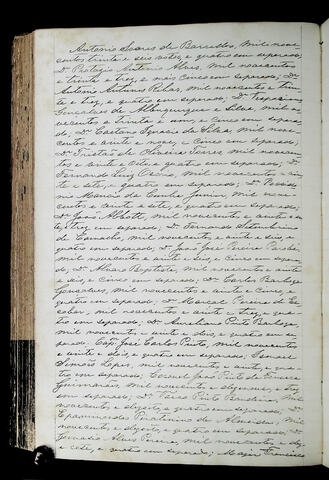 Antonio Soares de Barcellos, mil nove
centos trinta e seis votos, e quatro em separado;
Dr. Protasio Antonio Alves, mil novecentos
e trinta e tres, e mais cinco em separado; Dr.
Antonio Antunes Ribas, mil novecentos e trin
ta e tres, e quatro em separado; Dr. Trajano
Gonçalves de Albuquerque e Silva, mil no
vecentos e trinta e um, e cinco em separa
do, Dr. Caetano Ignacio da Silva, mil nove
centos e vinte e nove, e cinco em separado;
Dr. Tristão de mil novecen
tos e vinte e oito, e quatro em separado; Dr.
Fernando Luiz Osorio, mil novecentos e vin
te e sete, e quatro em separado; Dr.
Manoel da Cunha Junior, mil nove
centos e vinte e sete, e quatro em separado;
Dr. João Abbott, mil novecentos e vinte e se
te, e tres em separado; Dr. Fernando Setembrino
de Carvalho, mil novecentos e vinte e dois, e
quatro em separado; Dr. José Pereira
mil novecentos e vinte e dois, e cinco em separa
do; Dr. Alvaro Baptista, mil novecentos e vinte
e dois, e cinco em separado; Dr. Carlos Barbosa
Gonçalves, mil novecentos e vinte e cinco, e
quatro em separado; Dr. Marçal Pereira de Es
cobar, mil novecentos e vinte e tres, e qua
tro em separado; Dr. Aureliano Pinto Barbosa,
mil novecentos e vinte e dois, e quatro em se
parado; Cap. José Carlos Pinto, mil novecentos
e vinte e dois, e quatro em separado; Ismael
Simões Lopes, mil novecentos e vinte, e qua
tro em separado; José Pinto da Fonseca
Guimarães, mil novecentos e dezenove, e tres
em separado; Dr. Possidonio mil
novecentos e dezoito, e quatro em separado; Dr.
Epaminondas de Almeida, mil
novecentos e dezoito, e quatro em separado; Dr.
Alves Pereira, mil novecentos e dez
e sete, e quatro em separado; Major Francisco